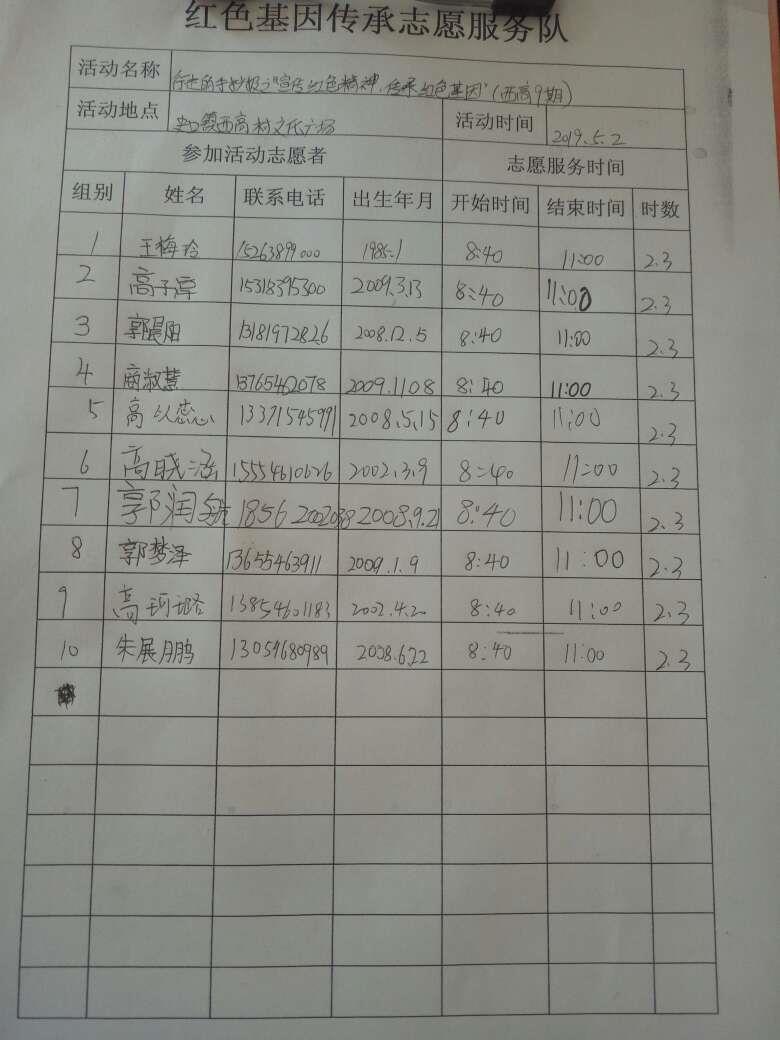 红色基因传承志愿服务队
活动名称 "宣传红色精神,传承红色基因"(西高9期)
活动地点 史口镇西高村文化广场 活动时间 2019.5.2
参加活动志愿者 志愿服务时间
组别 姓名 联系电话 出生年月 开始时间 结束时间 时数
1 王梅玲 15263899000 1985.1 8:40 11:00 2.3
2 高子潭 15318395300 2009.3.13 8:40 11:00 2.3
3 郭晨阳 13181972826 2008.12.5 8:40 11:00 2.3
4 商淑慧 13765462078 2009.1108 8:40 11:00 2.3
5 高 13371545991 2008.5.15 8:40 11:00 2.3
6 高晓涵 15554610626 2002.3.9 8:40 11:00 2.3
7 郭润 2008.9.21 8:40 11:00 2.3
8 郭梦泽 13655463911 2009.1.9 8:40 11:00 2.3
9 高珂璐 13854601183 2002.4.20 8:40 11:00 2.3
10 朱展鹏 13054680989 2008.6.22 8:40 11:00 2.3